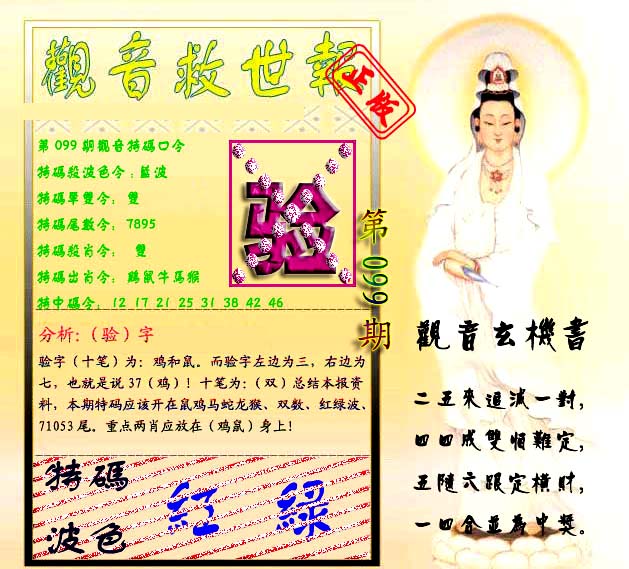 觀音救世報
正版
第099期觀音特碼口令
特碼殺波色令:藍波
特碼單雙令: 雙
特碼尾數令: 7895
特碼殺肖令: 雙
特碼出肖令: 鷄鼠牛馬猴
特中碼令: 12 17 21 25 31 38 42 46
验
第099期
分析:(验)字
验字(十笔)为:鸡和鼠。而验字左边为三,右边为
七,也就是说37(鸡)!十笔为:(双)总结本报资
料,本期特码应该开在鼠鸡马蛇龙猴、双数、红绿波、
71053尾。重点两肖应放在(鸡鼠)身上!
特碼
波色
紅 綠
觀音玄機書
二五來追减一對,
四四成雙恒難定,
五隨六跟定橫財,
一四合並為中獎。